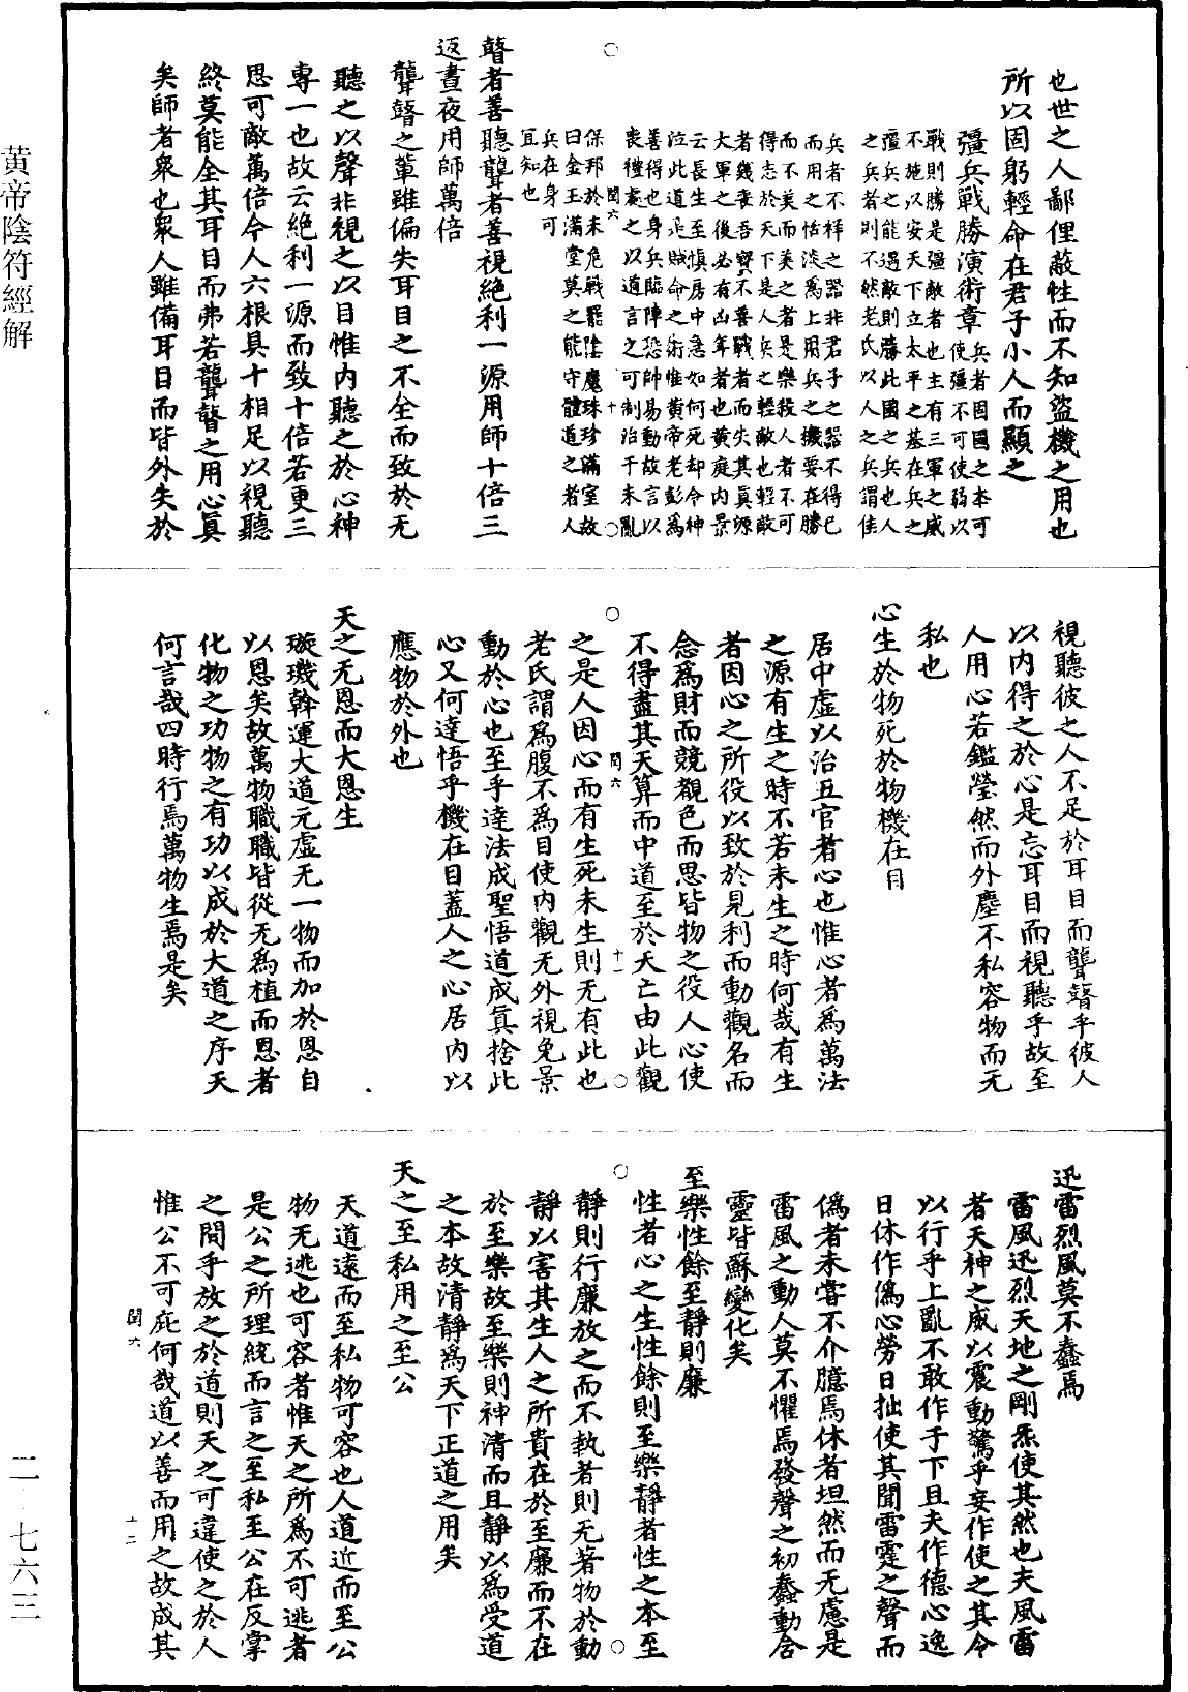 黃帝陰符經解
也世之人鄙俚蔽性而不知盜機之用也
所以固躬輕命在君子小人而顯之
彊兵戰勝演術章
兵者因國之本可
使彊不可使弱以
戰則勝是彊敵者也主有三軍之威
不施以安天下立太平之基在兵之
彊兵之能遇敵則勝此國之兵也人
之兵者則不然老氏以人之兵謂佳
兵者不祥之器非君子之器不得已
而用之恬淡爲上用兵之機要在勝
而不美而美之者是樂殺人者不可
得志於天下是人兵之輕敵也輕敵
者幾喪吾寶不善戰者而失其眞源
大軍之後必有凶年者也黃庭內景
云長生至慎房中急如何死却令神
泣此道是賊命之術惟黃帝老彭爲
善得也身兵臨陣恐帥易動故言以
喪禮處之以道言之可制治于未亂
閏六 十
保邦於未危戰罷陰魔珠珍滿室故
曰金玉滿堂莫之能守體道之者人
兵在身可
宜知也
瞽者善聽聾者善視絕利一源用師十倍三
返晝夜用師萬倍
聾瞽之輩雖偏失耳目之不全而致於无
聽之以聲非視之以目惟內聽之於心神
專一也故云絕利一源而致十倍若更三
思可敵萬倍今人六根具十相足以視聽
終莫能全其耳目而弗若聾瞽之用心眞
矣師者衆也衆人雖備耳目而皆外失於
視聽彼之人不足於耳目而聾瞽乎彼人
以內得之於心是忘耳目而視聽乎故至
人用心若鑑瑩然而外塵不私容物而无
私也
心生於物死於物機在目
居中虛以治五官者心也惟心者爲萬法
之源有生之時不若未生之時何哉有生
者因心之所役以致於見利而動觀名而
念爲財而競覩色而思皆物之役人心使
不得盡其天算而中道至於夭亡由此觀
閏六 十一
之是人因心而有生死未生則无有此也
老氏謂爲腹不爲目使內觀无外視免景
動於心也至乎達法成聖悟道成眞捨此
心又何達悟乎機在目蓋人之心居內以
應物於外也
天之无恩而大恩生
璇璣斡運大道元虛无一物而加於恩自
以恩矣故萬物職職皆從无爲植而恩者
化物之功物之有功以成於大道之序天
何言哉四時行焉萬物生焉是矣
迅雷烈風莫不蠢焉
雷風迅烈天地之剛炁使其然也夫風雷
者天神之威以震動驚乎妄作使之其令
以行乎上亂不敢作乎下且夫作德心逸
日休作僞心勞日拙使其聞雷霆之聲而
僞者未嘗不介臆焉休者坦然而无慮是
雷風之動人莫不懼焉發聲之初蠢動含
靈皆蘇變化矣
至樂性餘至靜則廉
性者心之生性餘則至樂靜者性之本至
靜則行廉放之而不執者則无著物於動
靜以害其生人之所貴在於至廉而不在
於至樂故至樂則神清而且靜以爲受道
之本故清靜爲天下正道之用矣
天之至私用之至公
天道遠而至私物可容也人道近而至公
物无逃也可容者惟天之所爲不可逃者
是公之所理統而言之至私至公在反掌
之間乎放之於道則天之可違使之於人
惟公不可庇何哉道以善而用之故成其
閏六 十二
二—七六三